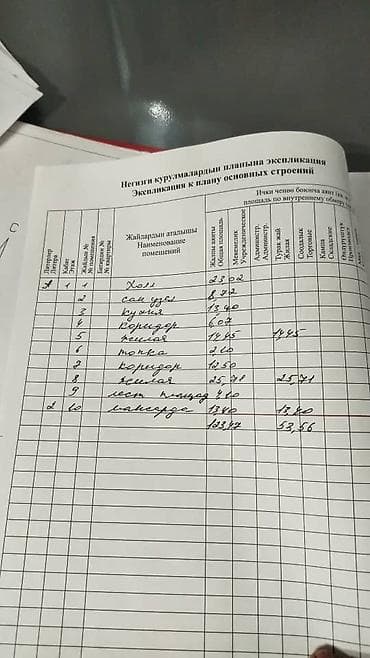 Негизги курулмалардын планына экспликация
Экспликация к плану основных строений
Ички ченөө боюнча аянт
площадь по внутреннему обмеру
Литерлер
Литера
Кабат
Этаж
Жайдын №
№ помещения
Батирдин №
№ квартиры
Жайлардын аталышы
Наименование
помещений
Жалпы аянты
Общая площадь
Мекемелик
Учрежденческие
Администр.
Администр.
Турак жай
Жилая
Соодалык
Торговые
Кампа
Складские
А 1 1 Холл 23.02
2 сан узел 8,72
3 кухня 13,40
4 коридор 6,07
5 жилая 14,45 14,45
6 топка 2,10
7 коридор 12,50
8 жилая 25,71 25,71
9 лест площад 4,10
2 10 мансарда 13,40 13,40
123,47 53,56